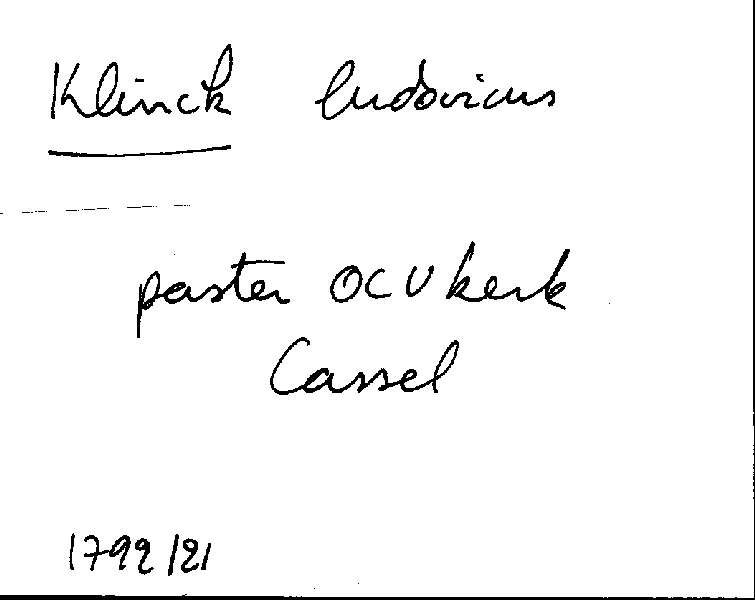 Klinck ludovicus
paster OCV kerk
Cassel
1792/21